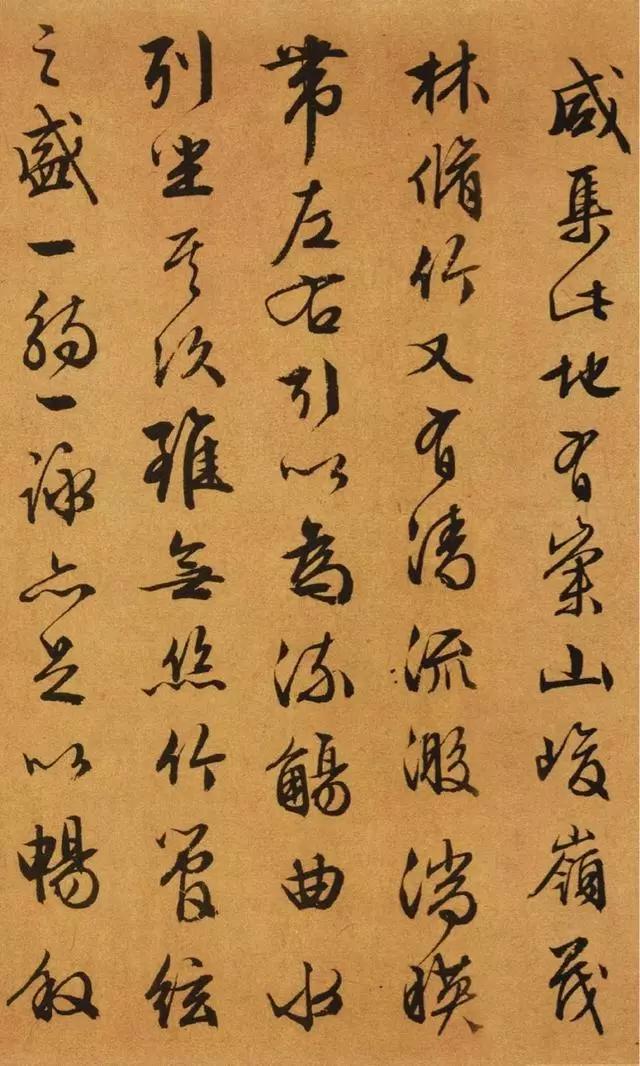 咸集此地有崇山峻嶺茂
林脩竹又有清流激湍映
帶左右引以為流觴曲水
列坐其次雖無絲竹管絃
之盛一觴一詠亦足以暢叙